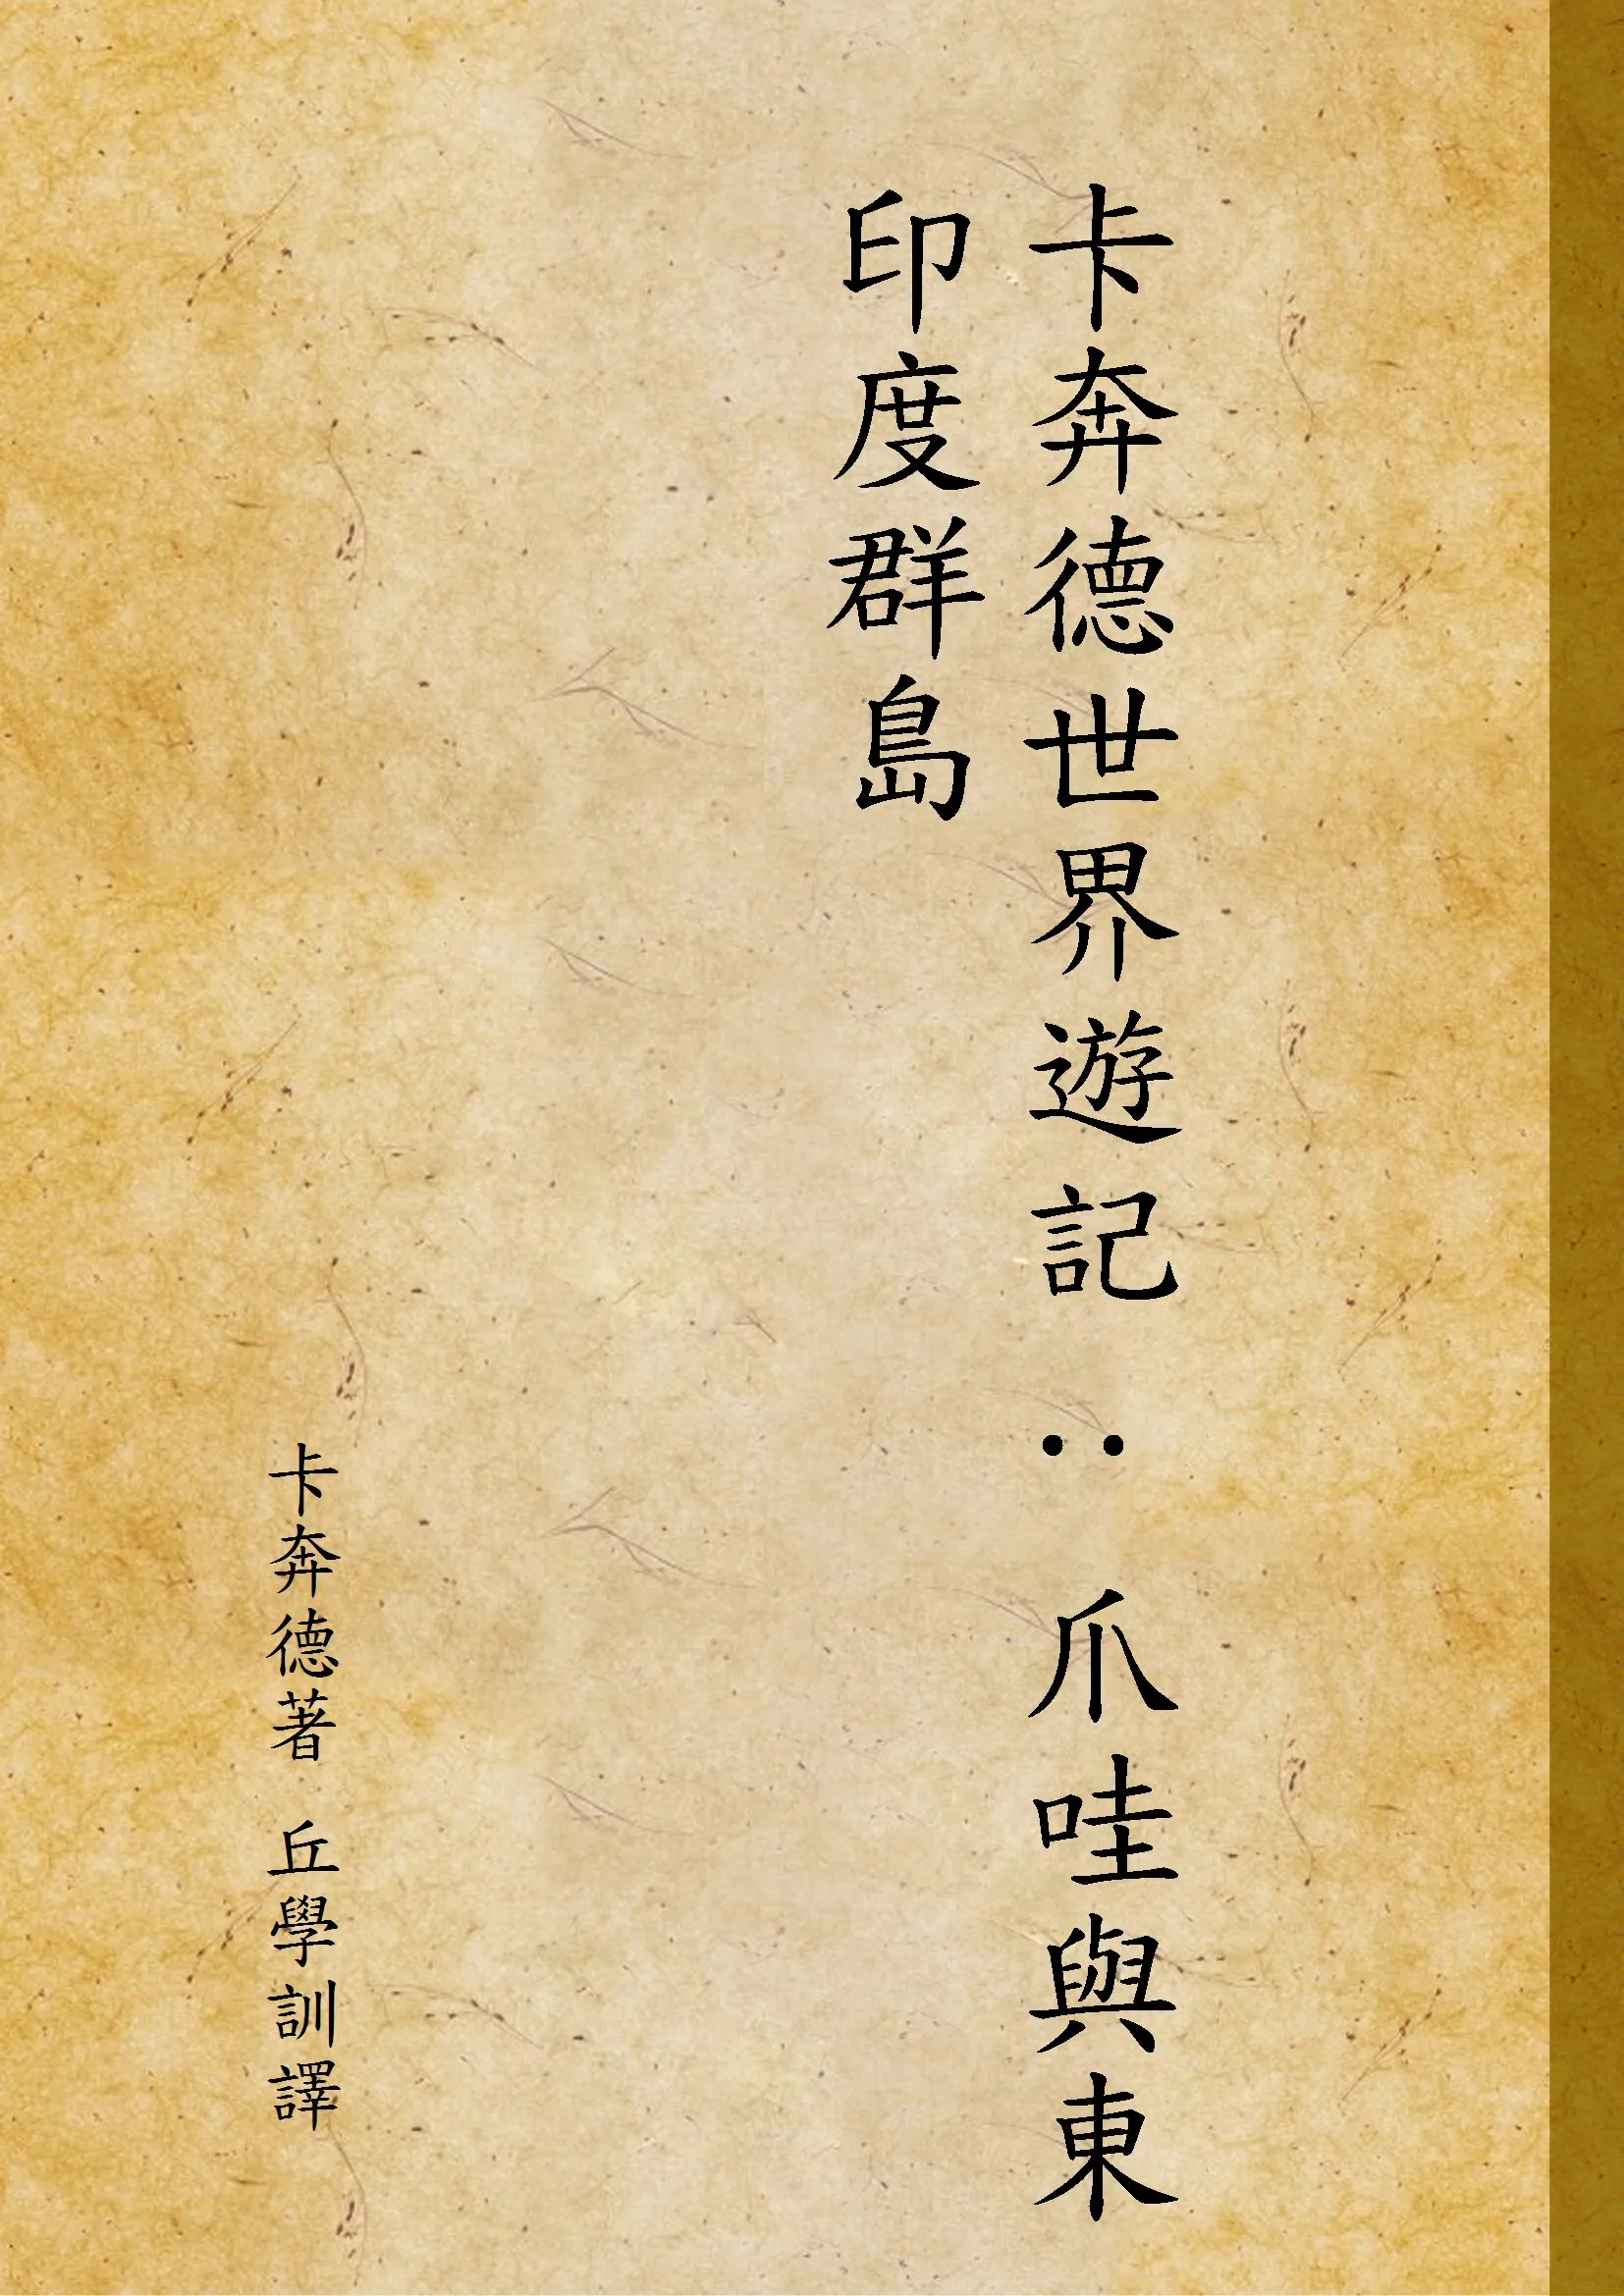 卡奔德世界遊記：爪哇與東
印度群島
卡奔德著 丘學訓譯